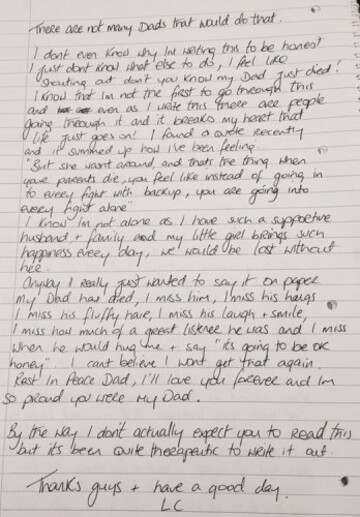 There are not many Dads that would do that.
I dont even know why Im writing this to be honest
I just dont know what else to do, I feel like
shouting out don't you know my Dad just died!
I know that Im not the first to go through this
and even as I write this there are people
going through it and it breaks my heart that
life just goes on! I found a quote recently
and it summed up how I've been feeling.
"But she wasnt around, and thats the thing when
your parents die, you feel like instead of going in
to every fight with backup, you are going into
every fight alone"
I know Im not alone as I have such a supportive
husband + family and my little girl brings such
happiness every day, we would be lost without
her.
Anyway I really just wanted to say it on paper
my Dad has died, I miss him, I miss his hugs
I miss his fluffy hair, I miss his laugh + smile,
I miss how much of a great listener he was and I miss
when he would hug me + say "its going to be ok
honey". I cant believe I wont get that again.
Rest In Peace Dad, I'll love you forever and Im
so proud you were my Dad.
By the way I don't actually expect you to read this
but it's been quite therapeutic to write it out.
Thanks guys + have a good day.
LC